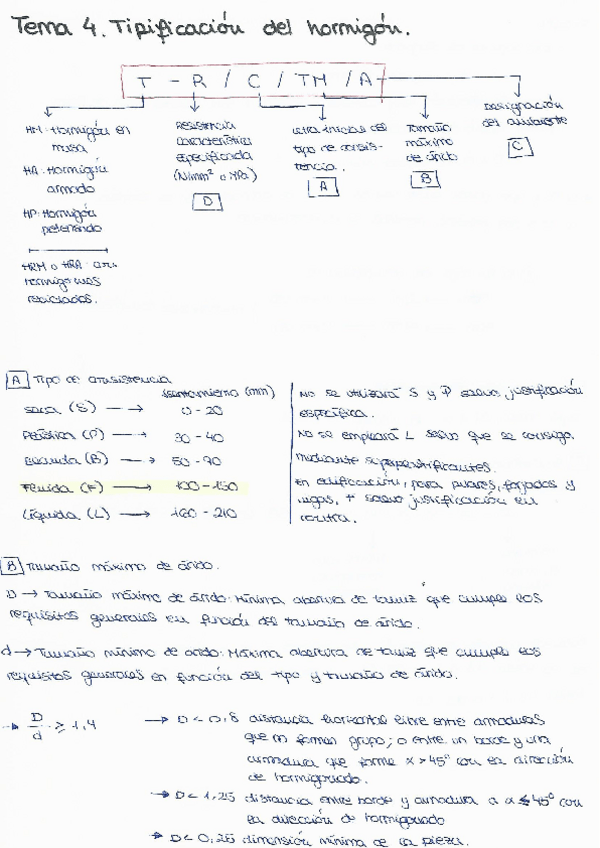 Tema 4. Tipificación del hormigón.
T - R / C / TM / A
HM: Hormigón en
masa
HA: Hormigón
armado
HP: Hormigón
pretensado
HRM o HRA: 
hormigones
reciclados.
Resistencia
característica
especificada
(N/mm² o MPa)
D
Letra inicial del
tipo de consis-
tencia.
A
Tamaño
máximo
de árido
B
Designación
del ambiente
C
A Tipo de consistencia
Asentamiento (mm)
Seca (S) → 0 - 20
Plástica (P) → 30 - 40
Blanda (B) → 50 - 90
Fluida (F) → 100 - 150
Líquida (L) → 160 - 210
No se utilizará S y P salvo justificación
específica.
No se empleará L salvo que se consiga
mediante superplastificantes.
En edificación, para pilares, forjados y
vigas, F salvo justificación en
contra.
B Tamaño máximo de árido.
D → Tamaño máximo de árido: Mínima abertura de tamiz que cumple los
requisitos generales en función del tamaño de árido.
d → Tamaño mínimo de árido: Máxima abertura de tamiz que cumple los
requisitos generales en función del tipo y tamaño de árido.
→ D/d ≥ 1,4
→ D < 0,8 distancia horizontal libre entre armaduras
que no formen grupo; o entre un borde y una
armadura que forme α > 45º con la dirección
de hormigonado.
→ D < 1,25 distancia entre borde y armadura a α ≤ 45º con
la dirección de hormigonado
→ D < 0,25 dimensión mínima de la pieza.